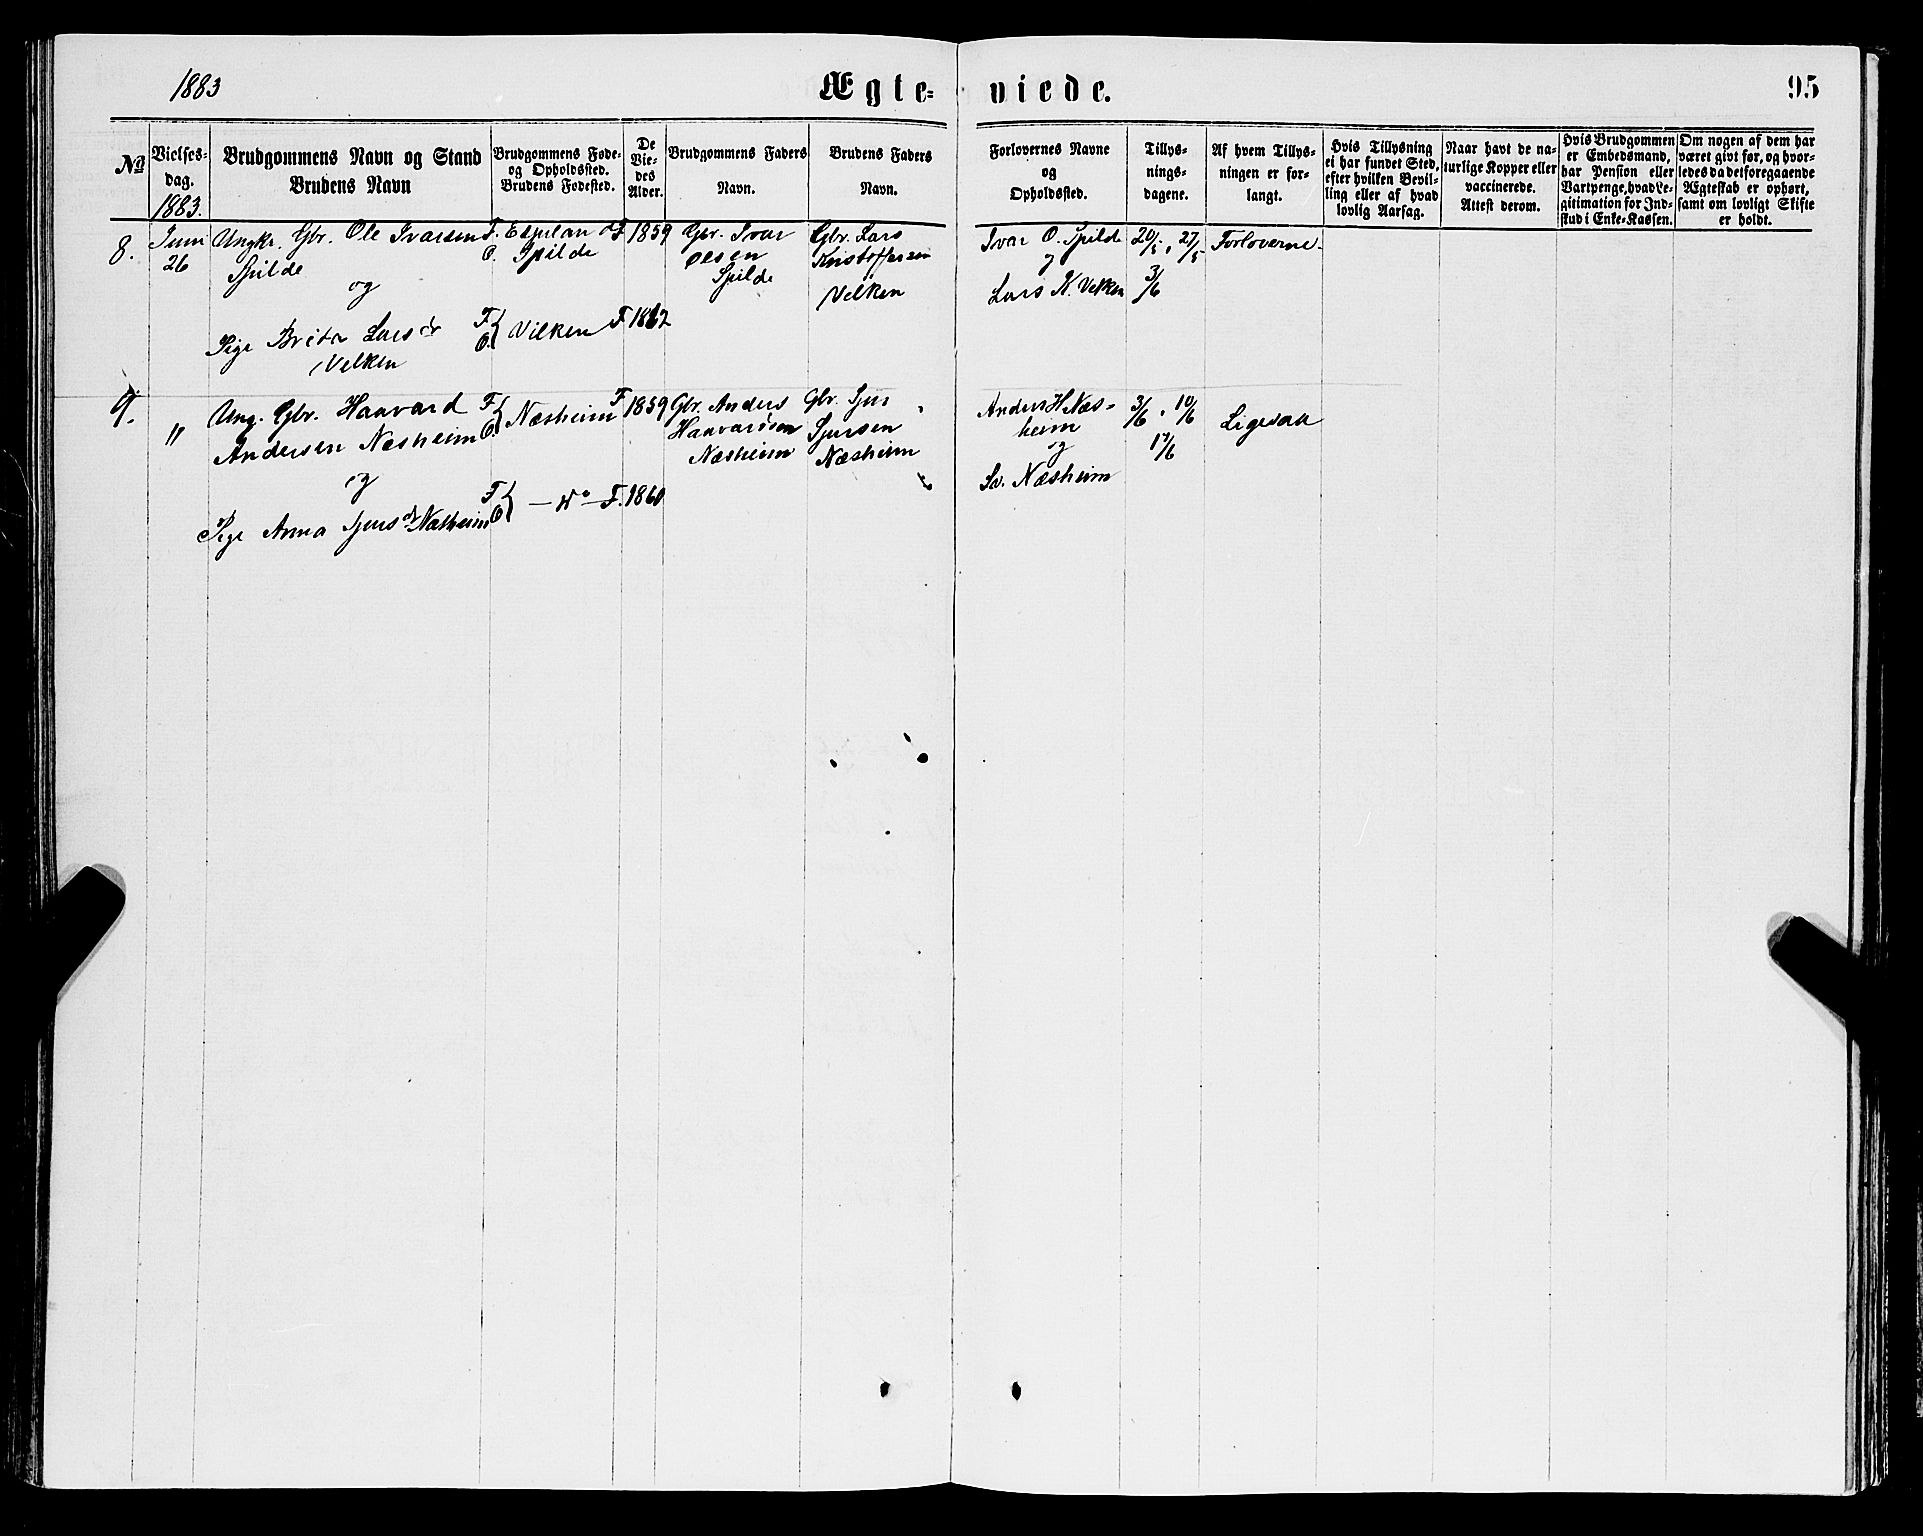 1883
Ægte-
viede.
95
No
Vielses-
dag.
1883.
Brudgommens Navn og Stand
Brudens Navn
Brudgommens Føde-
og Opholdssted.
Brudens Fødested.
De
Vie-
des
Alder.
Brudgommens Faders
Navn.
Brudens Faders
Navn.
Forlovernes Navne
og
Opholdssted.
Tillys-
nings-
dagene.
Af hvem Tillys-
ningen er for-
langt.
Hvis Tillysning
ei har fundet Sted,
efter hvilken Bevil-
ling eller af hvad
lovlig Aarsag.
Naar havt de na-
turlige Kopper eller
vaccinerede.
Attest derom.
Hvis Brudgommen
er Embedsmand,
har Pension eller
Vartpenge, hvad Le-
gitimation for Ind-
skud i Enke-Kassen.
Om nogen af dem har
været givt før, og hvor-
ledes da det foregaaende
Ægteskab er ophørt,
samt om lovligt Skifte
er holdt.
8.
Juni
26
Ungkr. Gbr. Ole Ivarsen
Spilde
og
Pige Brita Larsdr
Velken
F.
O. Spilde
F
O. Vilken
F 1859
F 1862
Gbr. Ivar
Olsen
Spilde
Gbr. Lars
Kristoffersen
Velken
Ivar O. Spilde
og
Lars K. Velken
20/5, 27/5
3/6
Forloverne.
9.
"
Ung. Gbr. Haavard
Andersen Næsheim
og
Pige Anna Sjursdr Næsheim
F
O. Næsheim
F
O — do —
F 1859
F. 1860
Gbr. Anders
Haavardsen
Næsheim
Gbr. Sjur
Sjursen
Næsheim
Anders H Næs-
heim
og
S. Næsheim
3/6, 10/6
17/6
Ligesaa